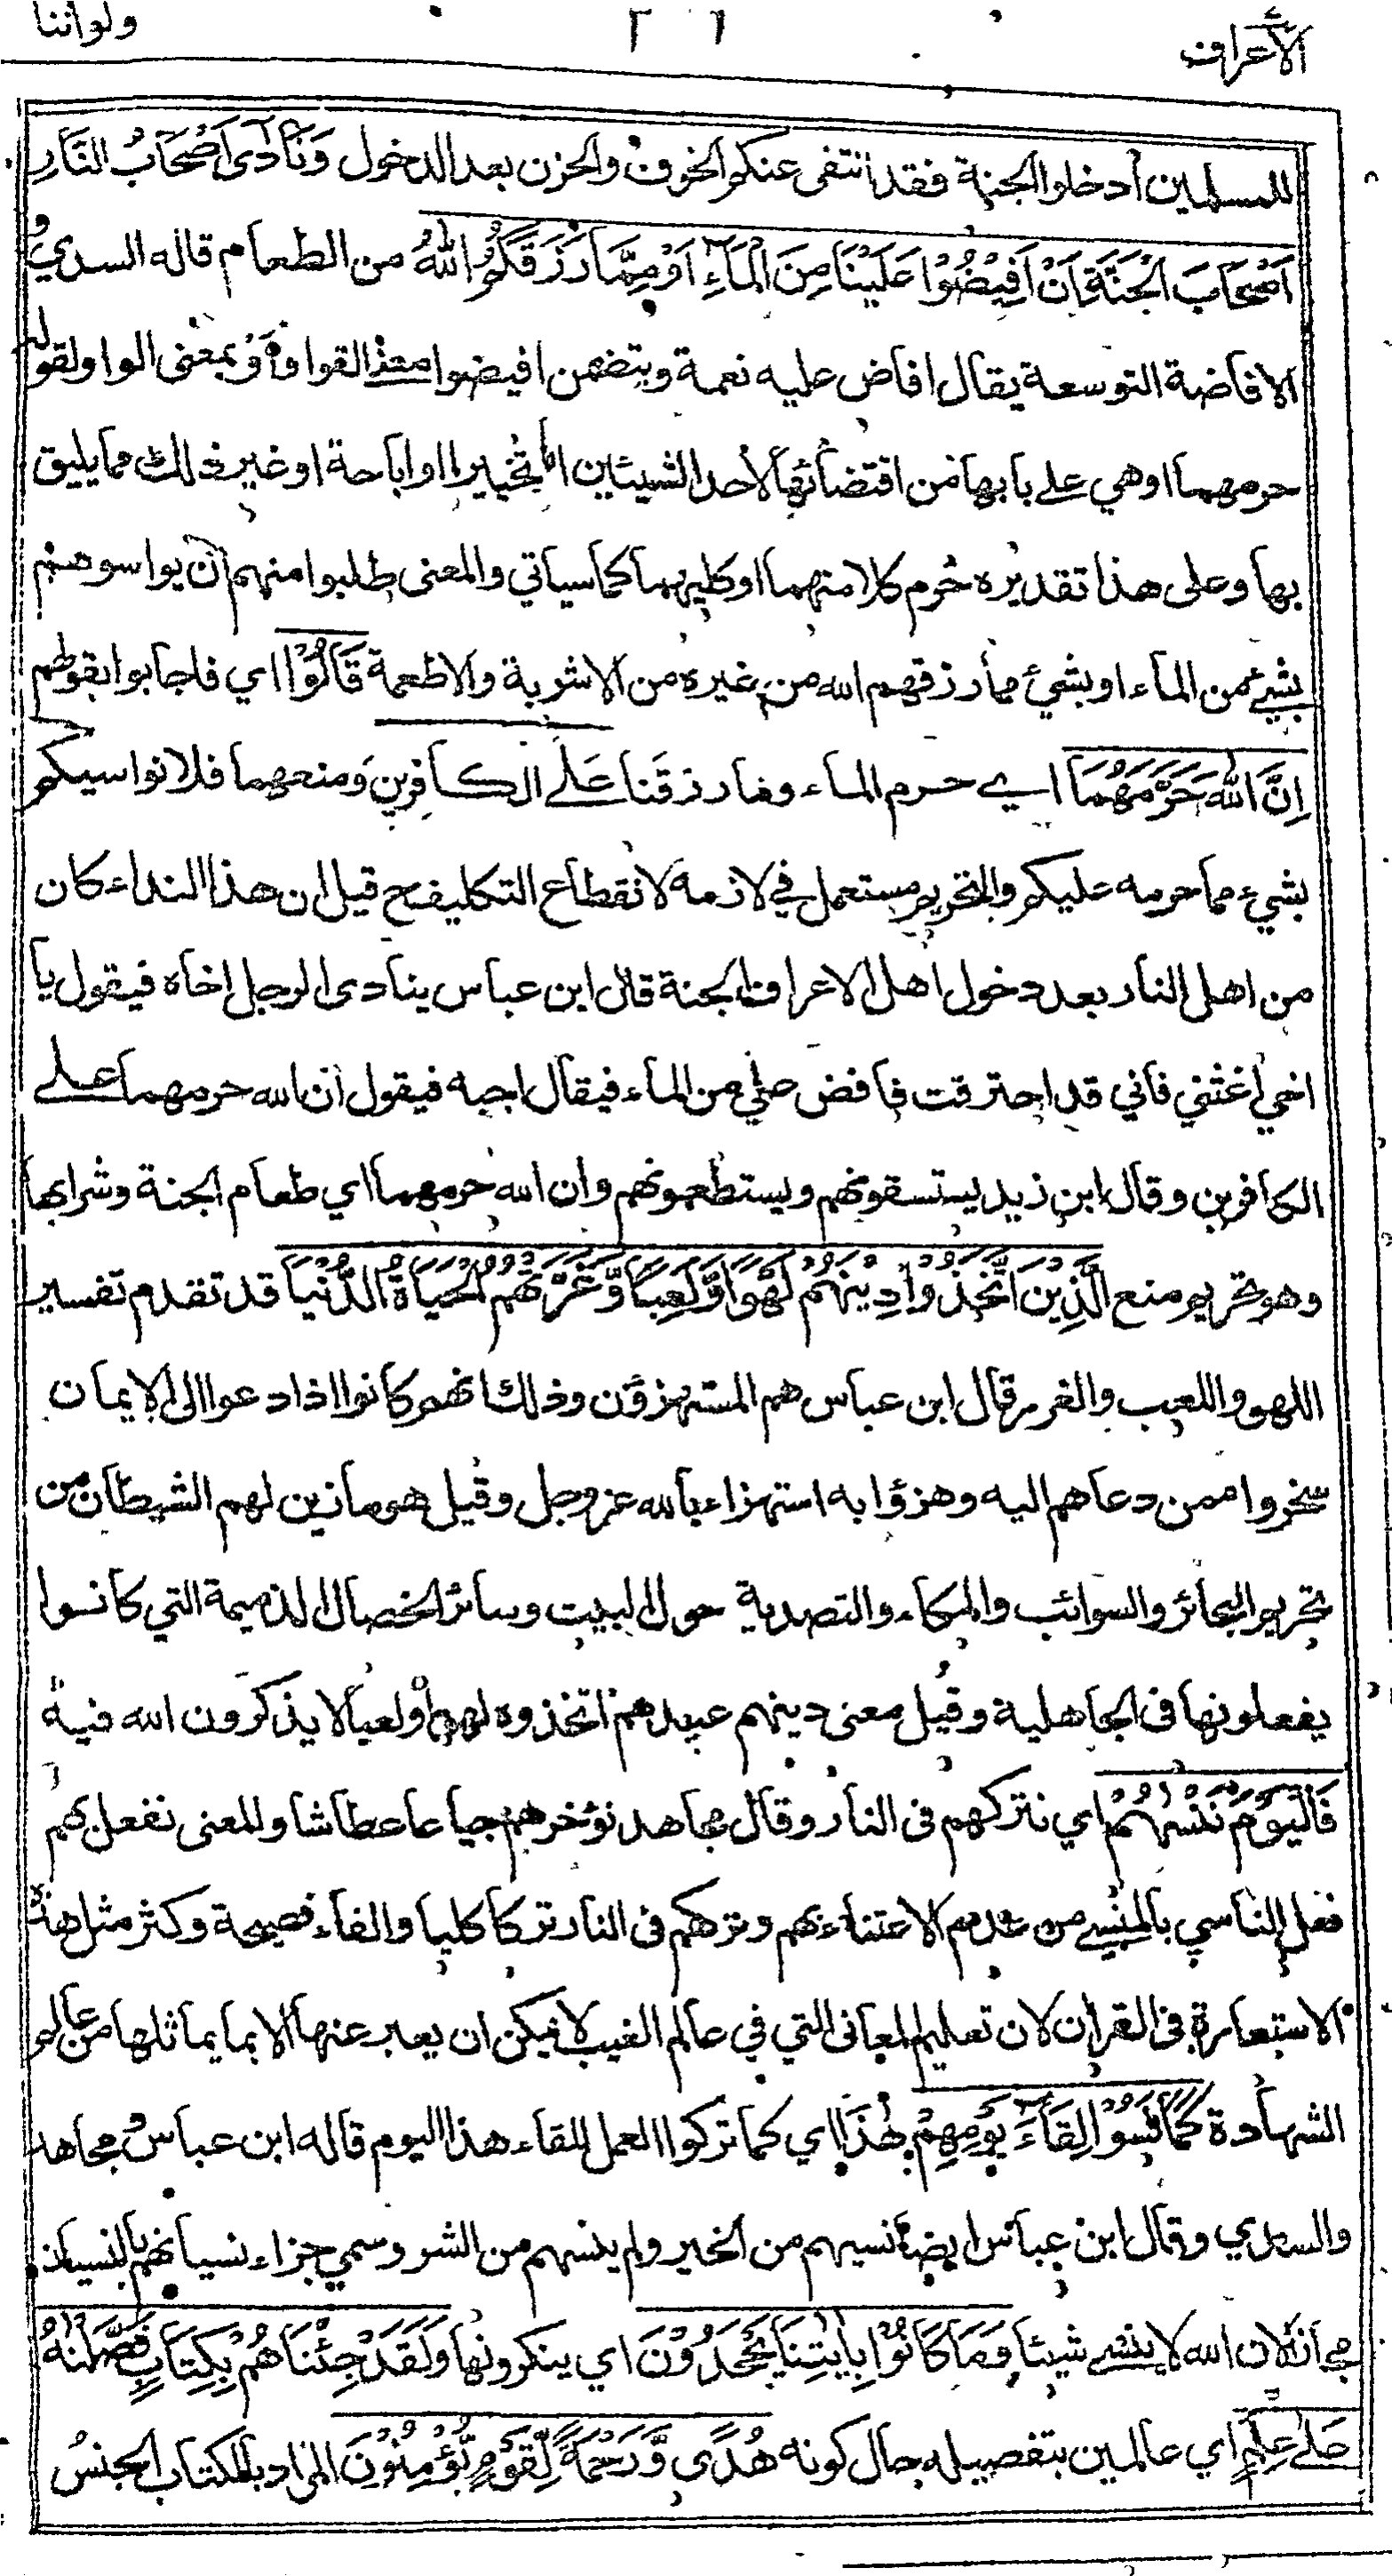 الأعراف ٢٦ ولو اننا
للمسلمين أدخلوا الجنة فقد انتفى عنكم الخوف والحزن بعد الدخول وَنَادَى أَصْحَابُ النَّارِ
اَصْحَابَ الْجَنَّةِ اَنْ اَفِيْضُوْا عَلَيْنَا مِنَ الْمَآءِ اَوْ مِمَّا رَزَقَكُمُ اللّٰهُ من الطعام قاله السدي و
الافاضة التوسعة يقال افاض عليه نعمة ويتضمن افيضوا معنى القوا وأَوْ بمعنى الواو لقوله
حرمهما او هي على بابها من اقتضائها لأحد الشيئين اما تخييرا او اباحة او غير ذلك مما يليق
بها وعلى هذا تقديره حُرم كلا منهما او كليهما كما سيأتي والمعنى طلبوا منهم ان يواسوهم
بشيء من الماء او بشيء مما رزقهم الله من غيره من الاشربة والاطعمة قَالُوْا اي فاجابوا بقولهم
اِنَّ اللّٰهَ حَرَّمَهُمَا اي حرم الماء وما رزقنا عَلَى الكافرين ومنعهما فلا نواسيكم
بشيء مما حرمه عليكم والتحريم مستعمل في لازمه لانقطاع التكليف ح قيل ان هذا النداء كان
من اهل النار بعد دخول اهل الاعراف الجنة قال ابن عباس ينادى الرجل اخاه فيقول يا
اخي اغثني فاني قد احترقت فافض علي من الماء فيقال اجبه فيقول ان الله حرمهما على
الكافرين وقال ابن زيد يستسقونهم ويستطعمونهم وان الله حرمهما اي طعام الجنة وشرابها
وهو تحريم منع الَّذِيْنَ اتَّخَذُوْا دِيْنَهُمْ لَهْوًا وَّلَعِبًا وَّغَرَّتْهُمُ الْحَيَاةُ الدُّنْيَا قد تقدم تفسير
اللهو واللعب والغرر قال ابن عباس هم المستهزؤن وذلك انهم كانوا اذا دعوا الى الايمان
سخروا ممن دعاهم اليه وهزؤا به استهزاء بالله عز وجل وقيل هو ما زين لهم الشيطان من
تحريم البحائر والسوائب والمكاء والتصدية حول البيت وسائر الخصال الذميمة التي كانوا
يفعلونها فى الجاهلية وقيل معنى دينهم عيدهم اتخذوه لهوا ولعبا لا يذكرون الله فيه
فَالْيَوْمَ نَنْسٰهُمْ اي نتركهم فى النار وقال مجاهد نؤخرهم جياعا عطاشا والمعنى نفعل بهم
فعل الناسي بالمنسي من عدم الاعتناء بهم وتركهم فى النار تركا كليا والفاء فصيحة وكثر مثل هذه
الاستعارة فى القرآن لان تعليم المعانى التي في عالم الغيب لا يمكن ان يعبر عنها الا بما يماثلها من عالم
الشهادة كَمَا نَسُوْا لِقَآءَ يَوْمِهِمْ هٰذَا اي كما تركوا العمل للقاء هذا اليوم قاله ابن عباس ومجاهد
والسدي وقال ابن عباس ايضا نسيهم من الخير ولم ينسهم من الشر وسمي جزاء نسيانهم بالنسيان
مجازا لان الله لا ينسى شيئا وَمَا كَانُوْا بِاٰيٰتِنَا يَجْحَدُوْنَ اي ينكرونها وَلَقَدْ جِئْنَاهُمْ بِكِتَابٍ فَصَّلْنٰهُ
عَلٰى عِلْمٍ اي عالمين بتفصيله حال كونه هُدًى وَّرَحْمَةً لِّقَوْمٍ يُّؤْمِنُوْنَ المراد بالكتاب الجنس